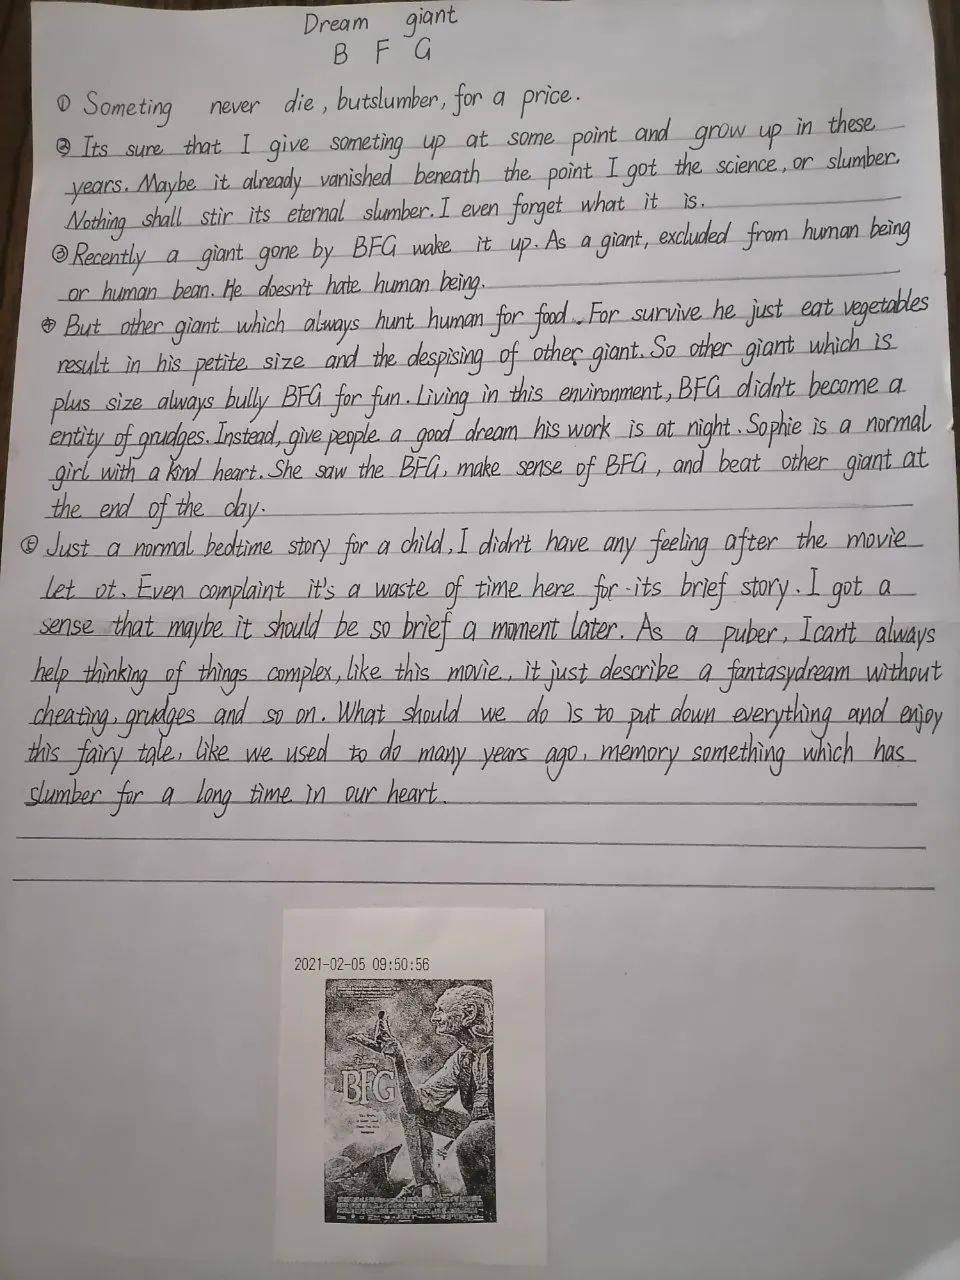 Dream giant
B F G
① Someting never die, butslumber, for a price.
② Its sure that I give someting up at some point and grow up in these
years. Maybe it already vanished beneath the point I got the science, or slumber.
Nothing shall stir its eternal slumber. I even forget what it is.
③ Recently a giant gone by BFG wake it up. As a giant, excluded from human being
or human bean. He doesn't hate human being.
④ But other giant which always hunt human for food. For survive he just eat vegetables
result in his petite size and the despising of other giant. So other giant which is
plus size always bully BFG for fun. Living in this environment, BFG didn't become a
entity of grudges. Instead, give people a good dream his work is at night. Sophie is a normal
girl with a kind heart. She saw the BFG, make sense of BFG, and beat other giant at
the end of the day.
Just a normal bedtime story for a child, I didn't have any feeling after the movie
let ot. Even complaint it's a waste of time here for its brief story. I got a
sense that maybe it should be so brief a moment later. As a puber, I can't always
help thinking of things complex, like this movie, it just describe a fantasydream without
cheating, grudges and so on. What should we do is to put down everything and enjoy
this fairy tale, like we used to do many years ago, memory something which has
slumber for a long time in our heart.
2021-02-05 09:50:56
BFG